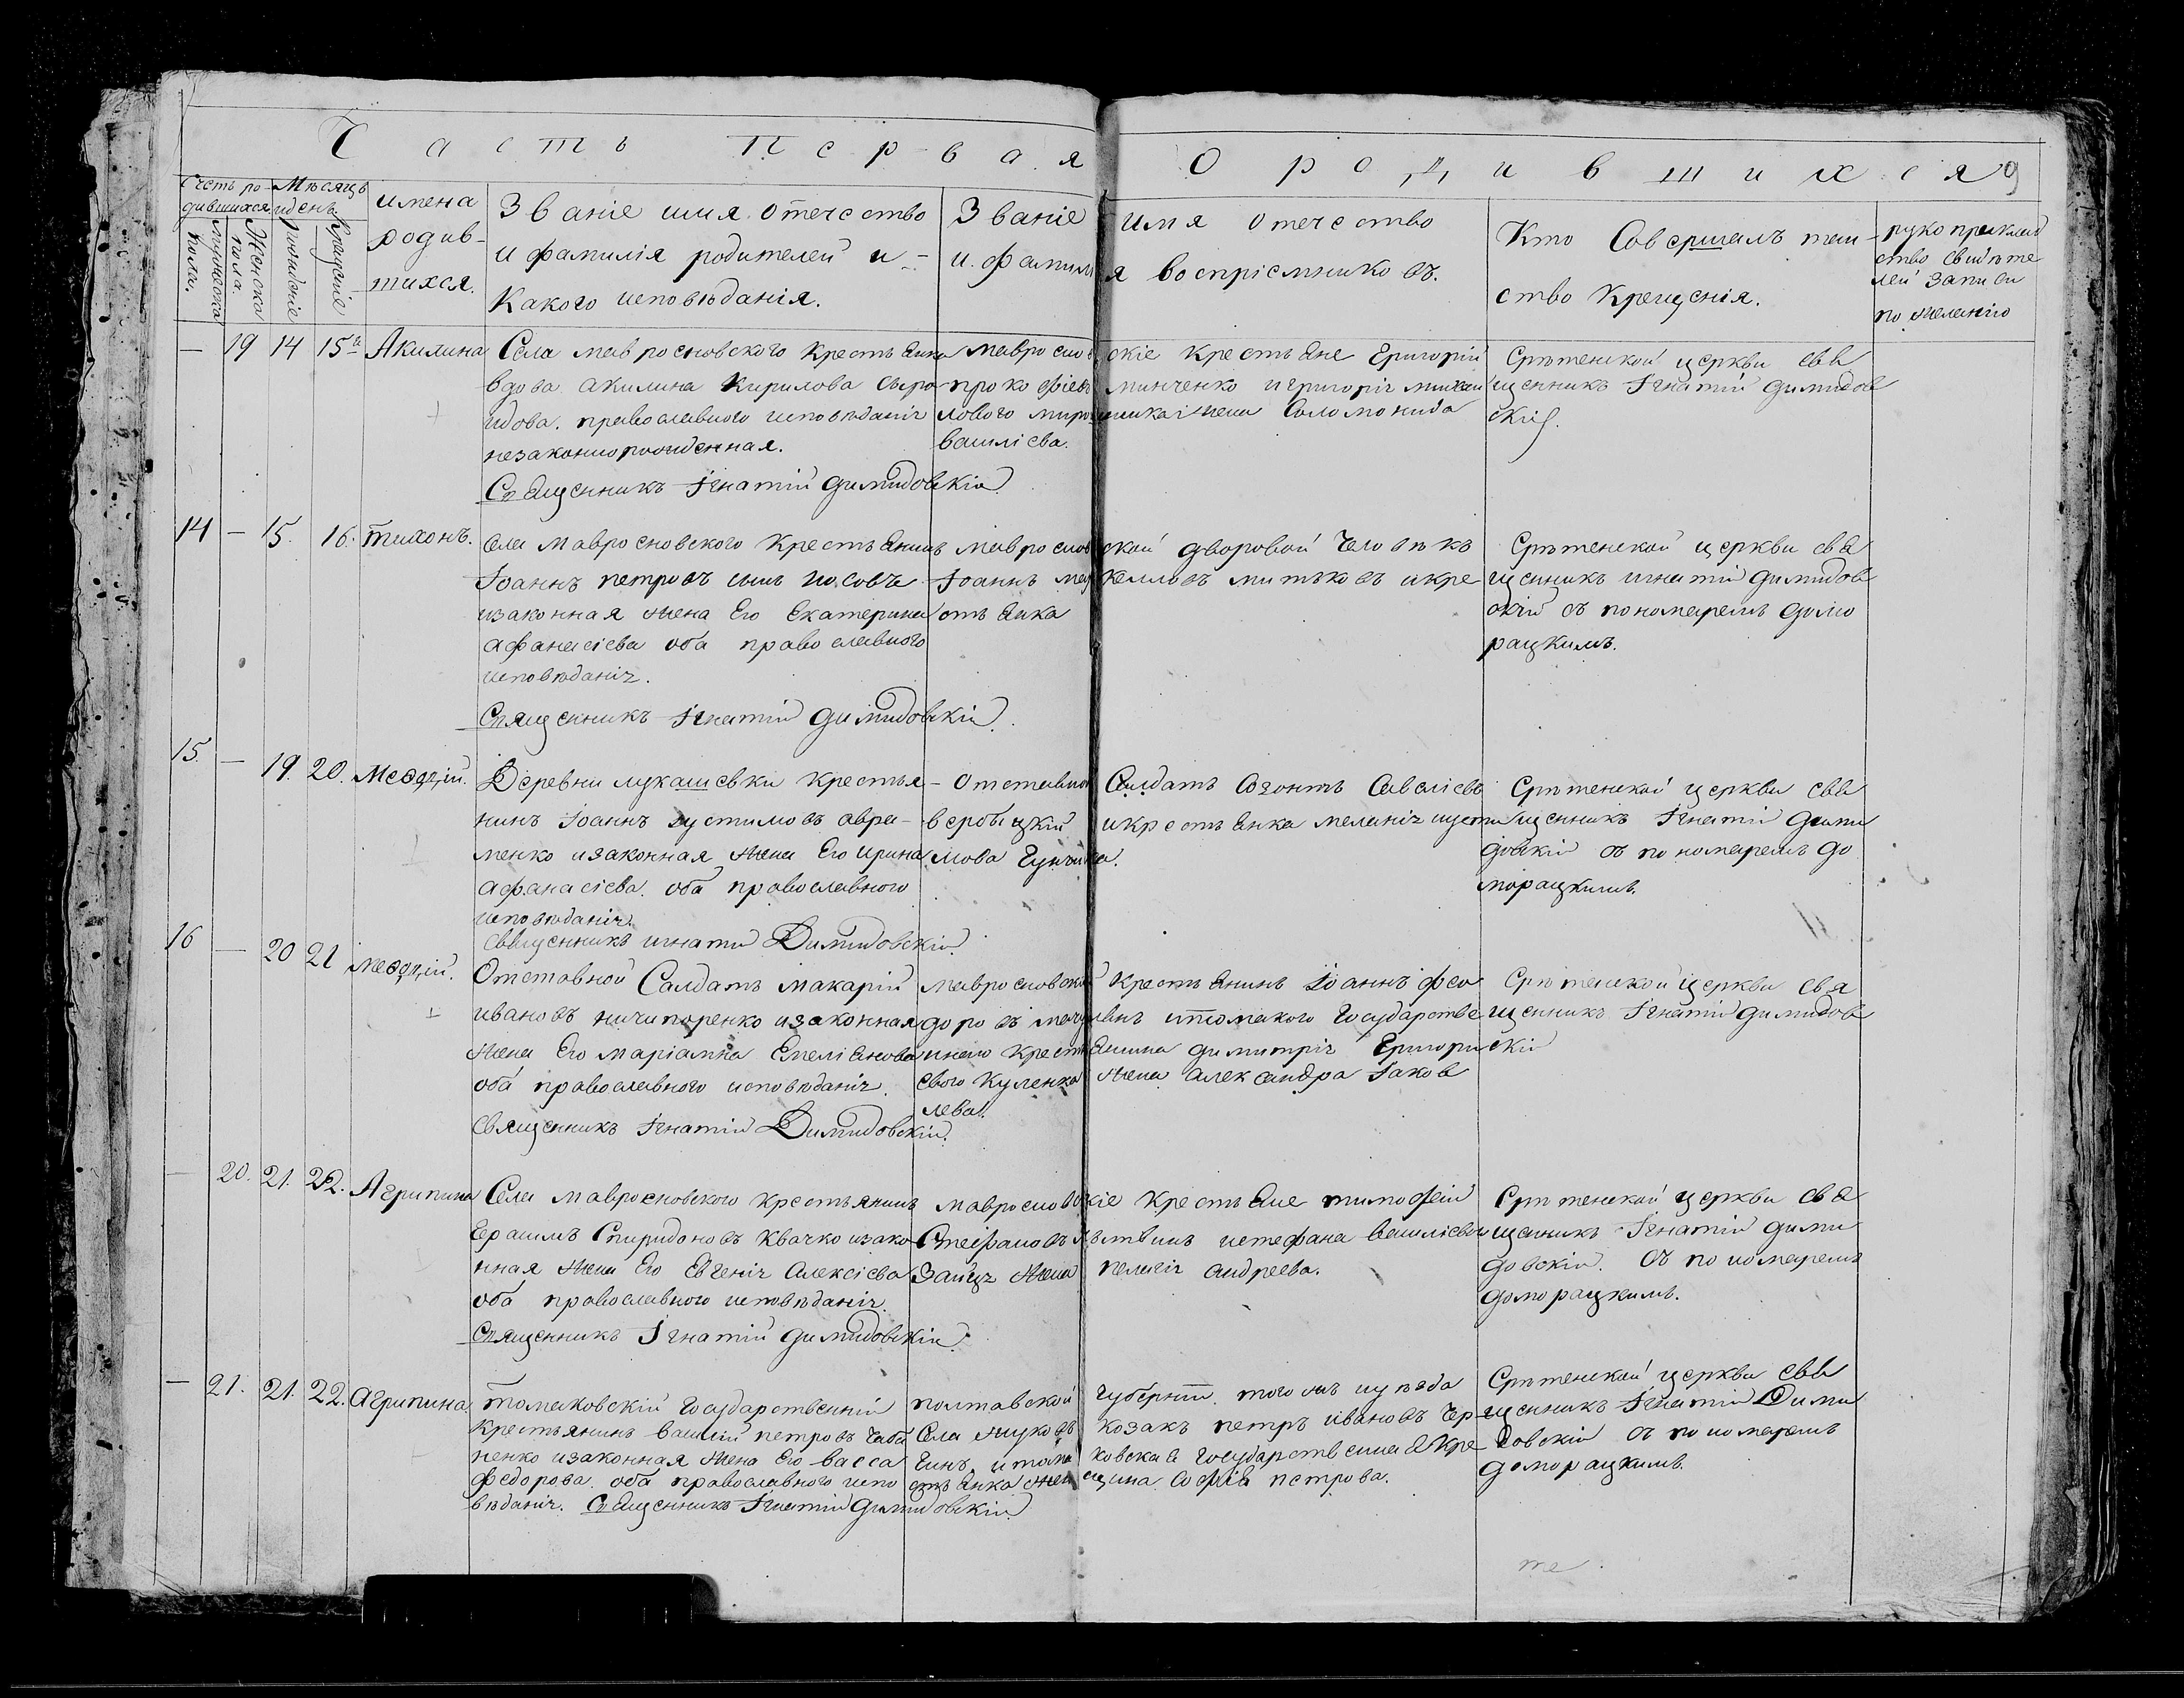 Часть первая
О родившихся 9
Счетъ ро-
дившихся
мужеска
пола.
Женска
пола.
Мѣсяцъ
и день
рожденiе
Крещенiе
имена
родив-
шихся.
Званiе имя отечество
и фамилiя родителей и-
Какого исповѣданiя.
Званiе имя отечество
и фамилiя воспрiемниковъ.
Кто Совершалъ таи-
ство Крещенiя.
рукоприклад
ство свидѣте
лей записи
по желанiю
— 19 14 15 Акилина
Села мавроеновского Крестьянка
вдова акилина Кирилова
православного исповѣданiя
незаконнорожденная.
Священникъ Iгнатiй Димидовскiй
скiе Крестьяне Григорiй
минченко и григорiя михаи
лового жена Соломонида
василiева.
Срѣтенской церкви свя
щенникъ Iгнатiй димидов
скiй.
14 — 15. 16. тихонъ.
Села мавроеновского Крестьянинъ
Iоаннъ петровъ сынъ
и законная жена Его Екатерина
афанасiева оба православного
исповѣданiя.
Священникъ Iгнатiй димидовскiй.
ской дворовой человѣкъ
Iоаннъ митьковъ и кре
стьянка
Срѣтенской церкви свя
щенникъ игнатiй димидов
скiй съ пономаремъ домо
рацкимъ.
15. — 19. 20. Меѳодiй.
Деревни лукашевки крестья-
нинъ Iоаннъ устимовъ авра-
менко и законная жена Его ирина
афанасiева оба православного
исповѣданiя.
Священникъ игнатiй Димидовскiй.
Отставной Салдатъ Созонтъ Савелiевъ
вербицкiй и крестьянка меланiя
Срѣтенской церкви свя
щенникъ Iгнатiй дими
довскiй съ пономаремъ до
морацкимъ.
16 — 20 21 меѳодiй.
Отставной Салдатъ макарiй
ивановъ ничипоренко и законная
жена Его марiамна Емелiянова
оба православного исповѣданiя.
Священникъ Iгнатiй Димидовскiй.
мавроеновской Крестьянинъ Iоаннъ фео
доровъ и томакого Государстве
нного крестьянина димитрiя Григори
евого Куленка жена александра Iаков
лева.
Срѣтенской церкви свя
щенникъ Iгнатiй димидов
скiй
— 20. 21. 22. Агрипина
Села мавроеновского крестьянинъ
Герасимъ Спиридоновъ Квачко и зако
нная жена Его Евгенiя Алексiева
оба православного исповѣданiя.
Священникъ Iгнатiй димидовскiй.
мавроеновскiе Крестьяне тимофей
Стефановъ и стефана василiева
Заица жена пелагiя андреева.
Срѣтенской церкви свя
щенникъ Iгнатiй дими
довскiй. съ пономаремъ
доморацкимъ.
— 21. 21. 22. агрипина.
томаковскiй Государственнiй
Крестьянинъ василiй петровъ
ненко и законная жена Его васса
федорова оба православного испо
вѣданiя. Священникъ Iгнатiй димидовскiй.
полтавской губернiи того жъ уѣзда
Села жуковъ козакъ петръ ивановъ
и томаковская Государственная Кре
стьянка софiя петрова.
Срѣтенской церкви свя
щенникъ Iгнатiй Дими
довскiй съ пономаремъ
доморацкимъ.